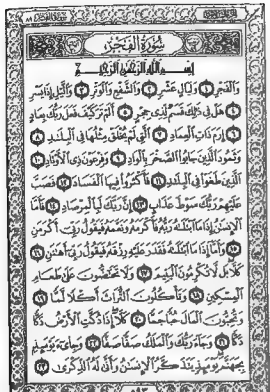 سُورَةُ الْفَجْرِ
بِسْمِ اللَّهِ الرَّحْمَٰنِ الرَّحِيمِ
وَالْفَجْرِ ۝١ وَلَيَالٍ عَشْرٍ ۝٢ وَالشَّفْعِ وَالْوَتْرِ ۝٣ وَاللَّيْلِ إِذَا يَسْرِ
۝٤ هَلْ فِي ذَٰلِكَ قَسَمٌ لِّذِي حِجْرٍ ۝٥ أَلَمْ تَرَ كَيْفَ فَعَلَ رَبُّكَ بِعَادٍ
۝٦ إِرَمَ ذَاتِ الْعِمَادِ ۝٧ الَّتِي لَمْ يُخْلَقْ مِثْلُهَا فِي الْبِلَادِ ۝٨
وَثَمُودَ الَّذِينَ جَابُوا الصَّخْرَ بِالْوَادِ ۝٩ وَفِرْعَوْنَ ذِي الْأَوْتَادِ ۝١٠
الَّذِينَ طَغَوْا فِي الْبِلَادِ ۝١١ فَأَكْثَرُوا فِيهَا الْفَسَادَ ۝١٢ فَصَبَّ
عَلَيْهِمْ رَبُّكَ سَوْطَ عَذَابٍ ۝١٣ إِنَّ رَبَّكَ لَبِالْمِرْصَادِ ۝١٤ فَأَمَّا
الْإِنسَانُ إِذَا مَا ابْتَلَاهُ رَبُّهُ فَأَكْرَمَهُ وَنَعَّمَهُ فَيَقُولُ رَبِّي أَكْرَمَنِ
۝١٥ وَأَمَّا إِذَا مَا ابْتَلَاهُ فَقَدَرَ عَلَيْهِ رِزْقَهُ فَيَقُولُ رَبِّي أَهَانَنِ ۝١٦
كَلَّا بَل لَّا تُكْرِمُونَ الْيَتِيمَ ۝١٧ وَلَا تَحَاضُّونَ عَلَىٰ طَعَامِ
الْمِسْكِينِ ۝١٨ وَتَأْكُلُونَ التُّرَاثَ أَكْلًا لَّمًّا ۝١٩
وَتُحِبُّونَ الْمَالَ حُبًّا جَمًّا ۝٢٠ كَلَّا إِذَا دُكَّتِ الْأَرْضُ دَكًّا
دَكًّا ۝٢١ وَجَاءَ رَبُّكَ وَالْمَلَكُ صَفًّا صَفًّا ۝٢٢ وَجِيءَ يَوْمَئِذٍ
بِجَهَنَّمَ يَوْمَئِذٍ يَتَذَكَّرُ الْإِنسَانُ وَأَنَّىٰ لَهُ الذِّكْرَىٰ ۝٢٣
٥٩٣